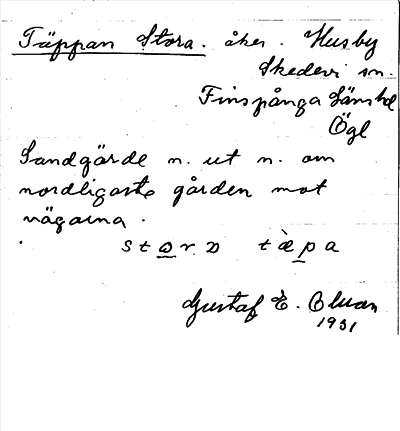 Täppan Stora. åker. Husby
Skedevi sn.
Finspånga Länshd
Ögl
Sandgärde n. ut n. om
nordligaste gården mot
vägarna.
stɷrɒ tæ̀pa
Gustaf E. Olsson
1931